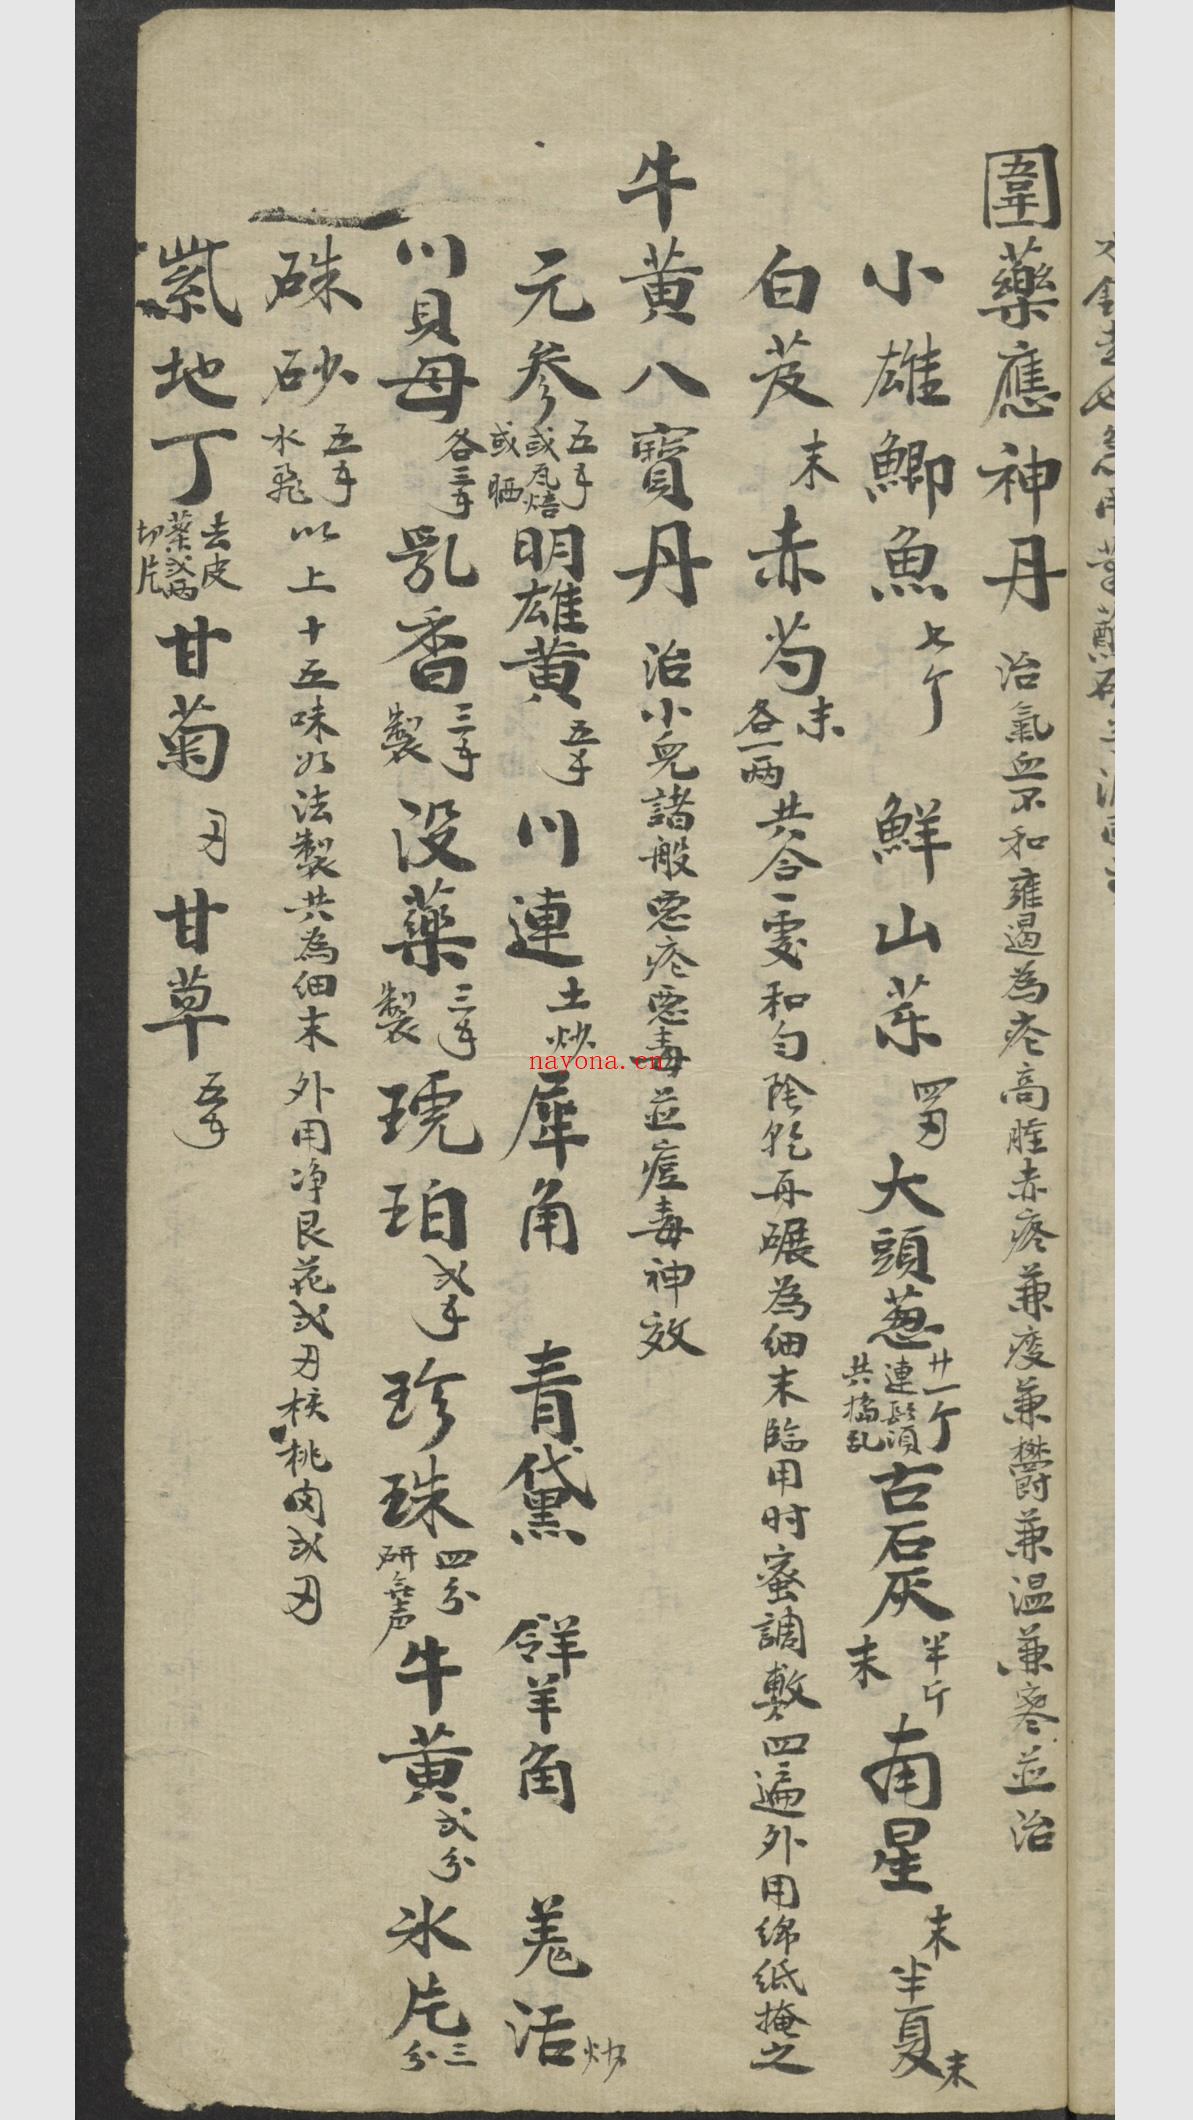 圍藥應神丹 治氣血不和雍遏為疮高腫赤疼兼痰兼欝兼温兼寒並治
小雄鯽魚 七个 鮮山药 四刄 大頭葱 廿一个 連鬍須 共搗乱 古石灰 半斤 末 南星 末 半夏 末
白芨 末 赤芍 末 各一两 共合一䖏和匀陰乾再碾為细末臨用时蜜調敷四遍外用绵紙掩之
牛黄八寳丹 治小兒諸般惡疮惡毒並痘毒神效
元参 五手 或瓦焙 或晒 明雄黄 五手 川連 土炒 犀角 青黛 羊角 羌活 炒
川貝母 各三手 乳香 三手 製 没藥 三手 製 琥珀 弍手 珍珠 四分 研無声 牛黄 弍分 氷片 三分
硃砂 五手 水飛 以上十五味如法製共為细末外用净艮花弍刄核桃肉弍刄
紫地丁 去皮 葉弍两 切片 甘菊 刄 甘草 五手
nayona.cn